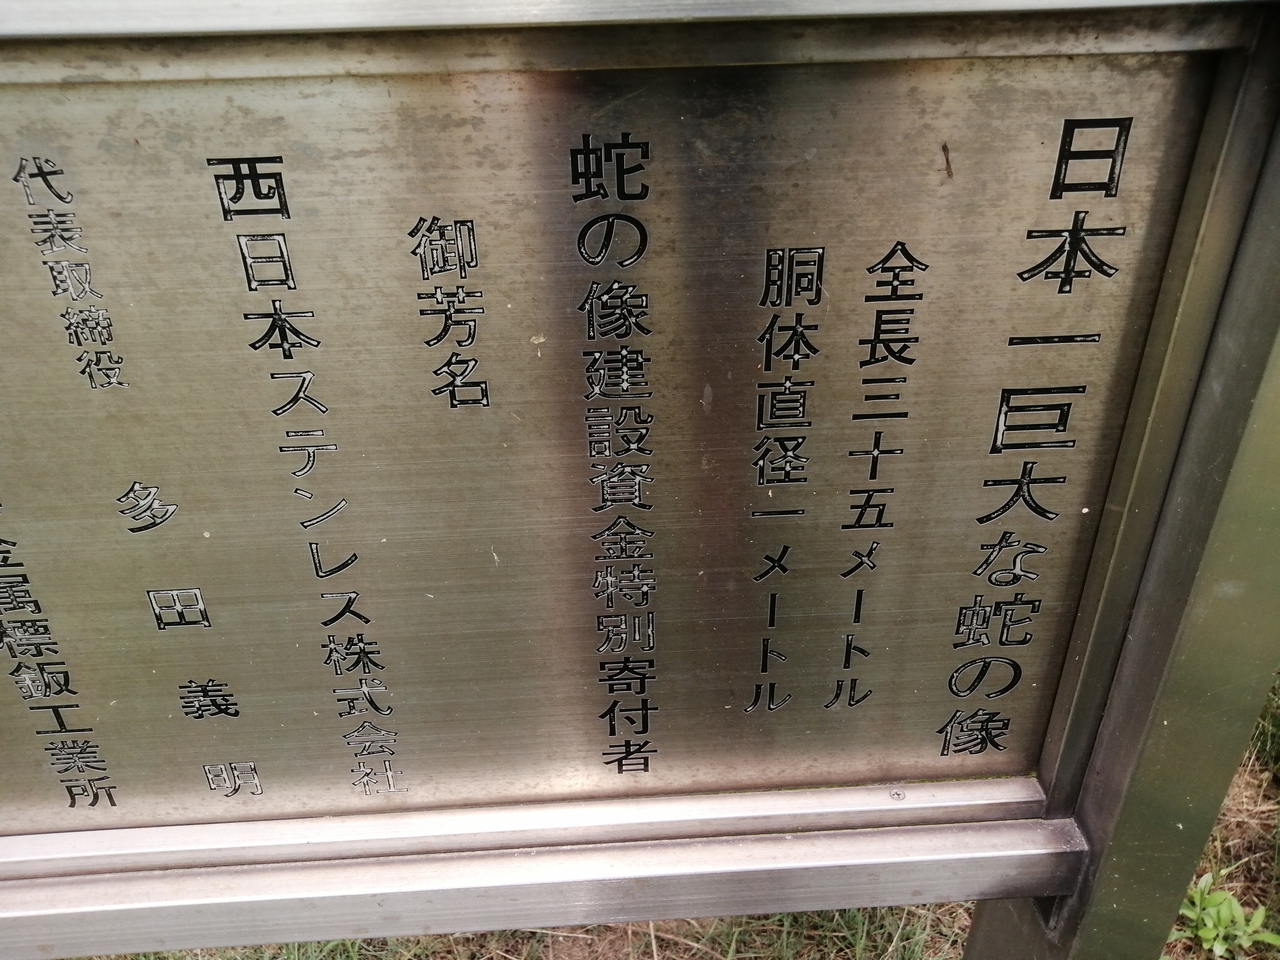 日本一巨大な蛇の像
全長三十五メートル
胴体直径一メートル
蛇の像建設資金特別寄付者
御芳名
西日本ステンレス株式会社
代表取締役 多田義明
金属標鈑工業所